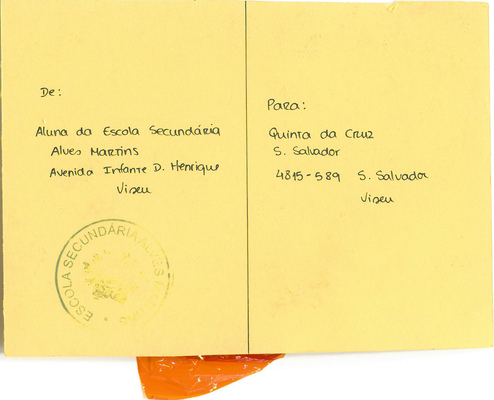 De:
Aluna da Escola Secundária
Alves Martins
Avenida Infante D. Henrique
Viseu
ESCOLA SECUNDÁRIA ALVES MARTINS
Para:
Quinta da Cruz
S. Salvador
4815-589 S. Salvador
Viseu